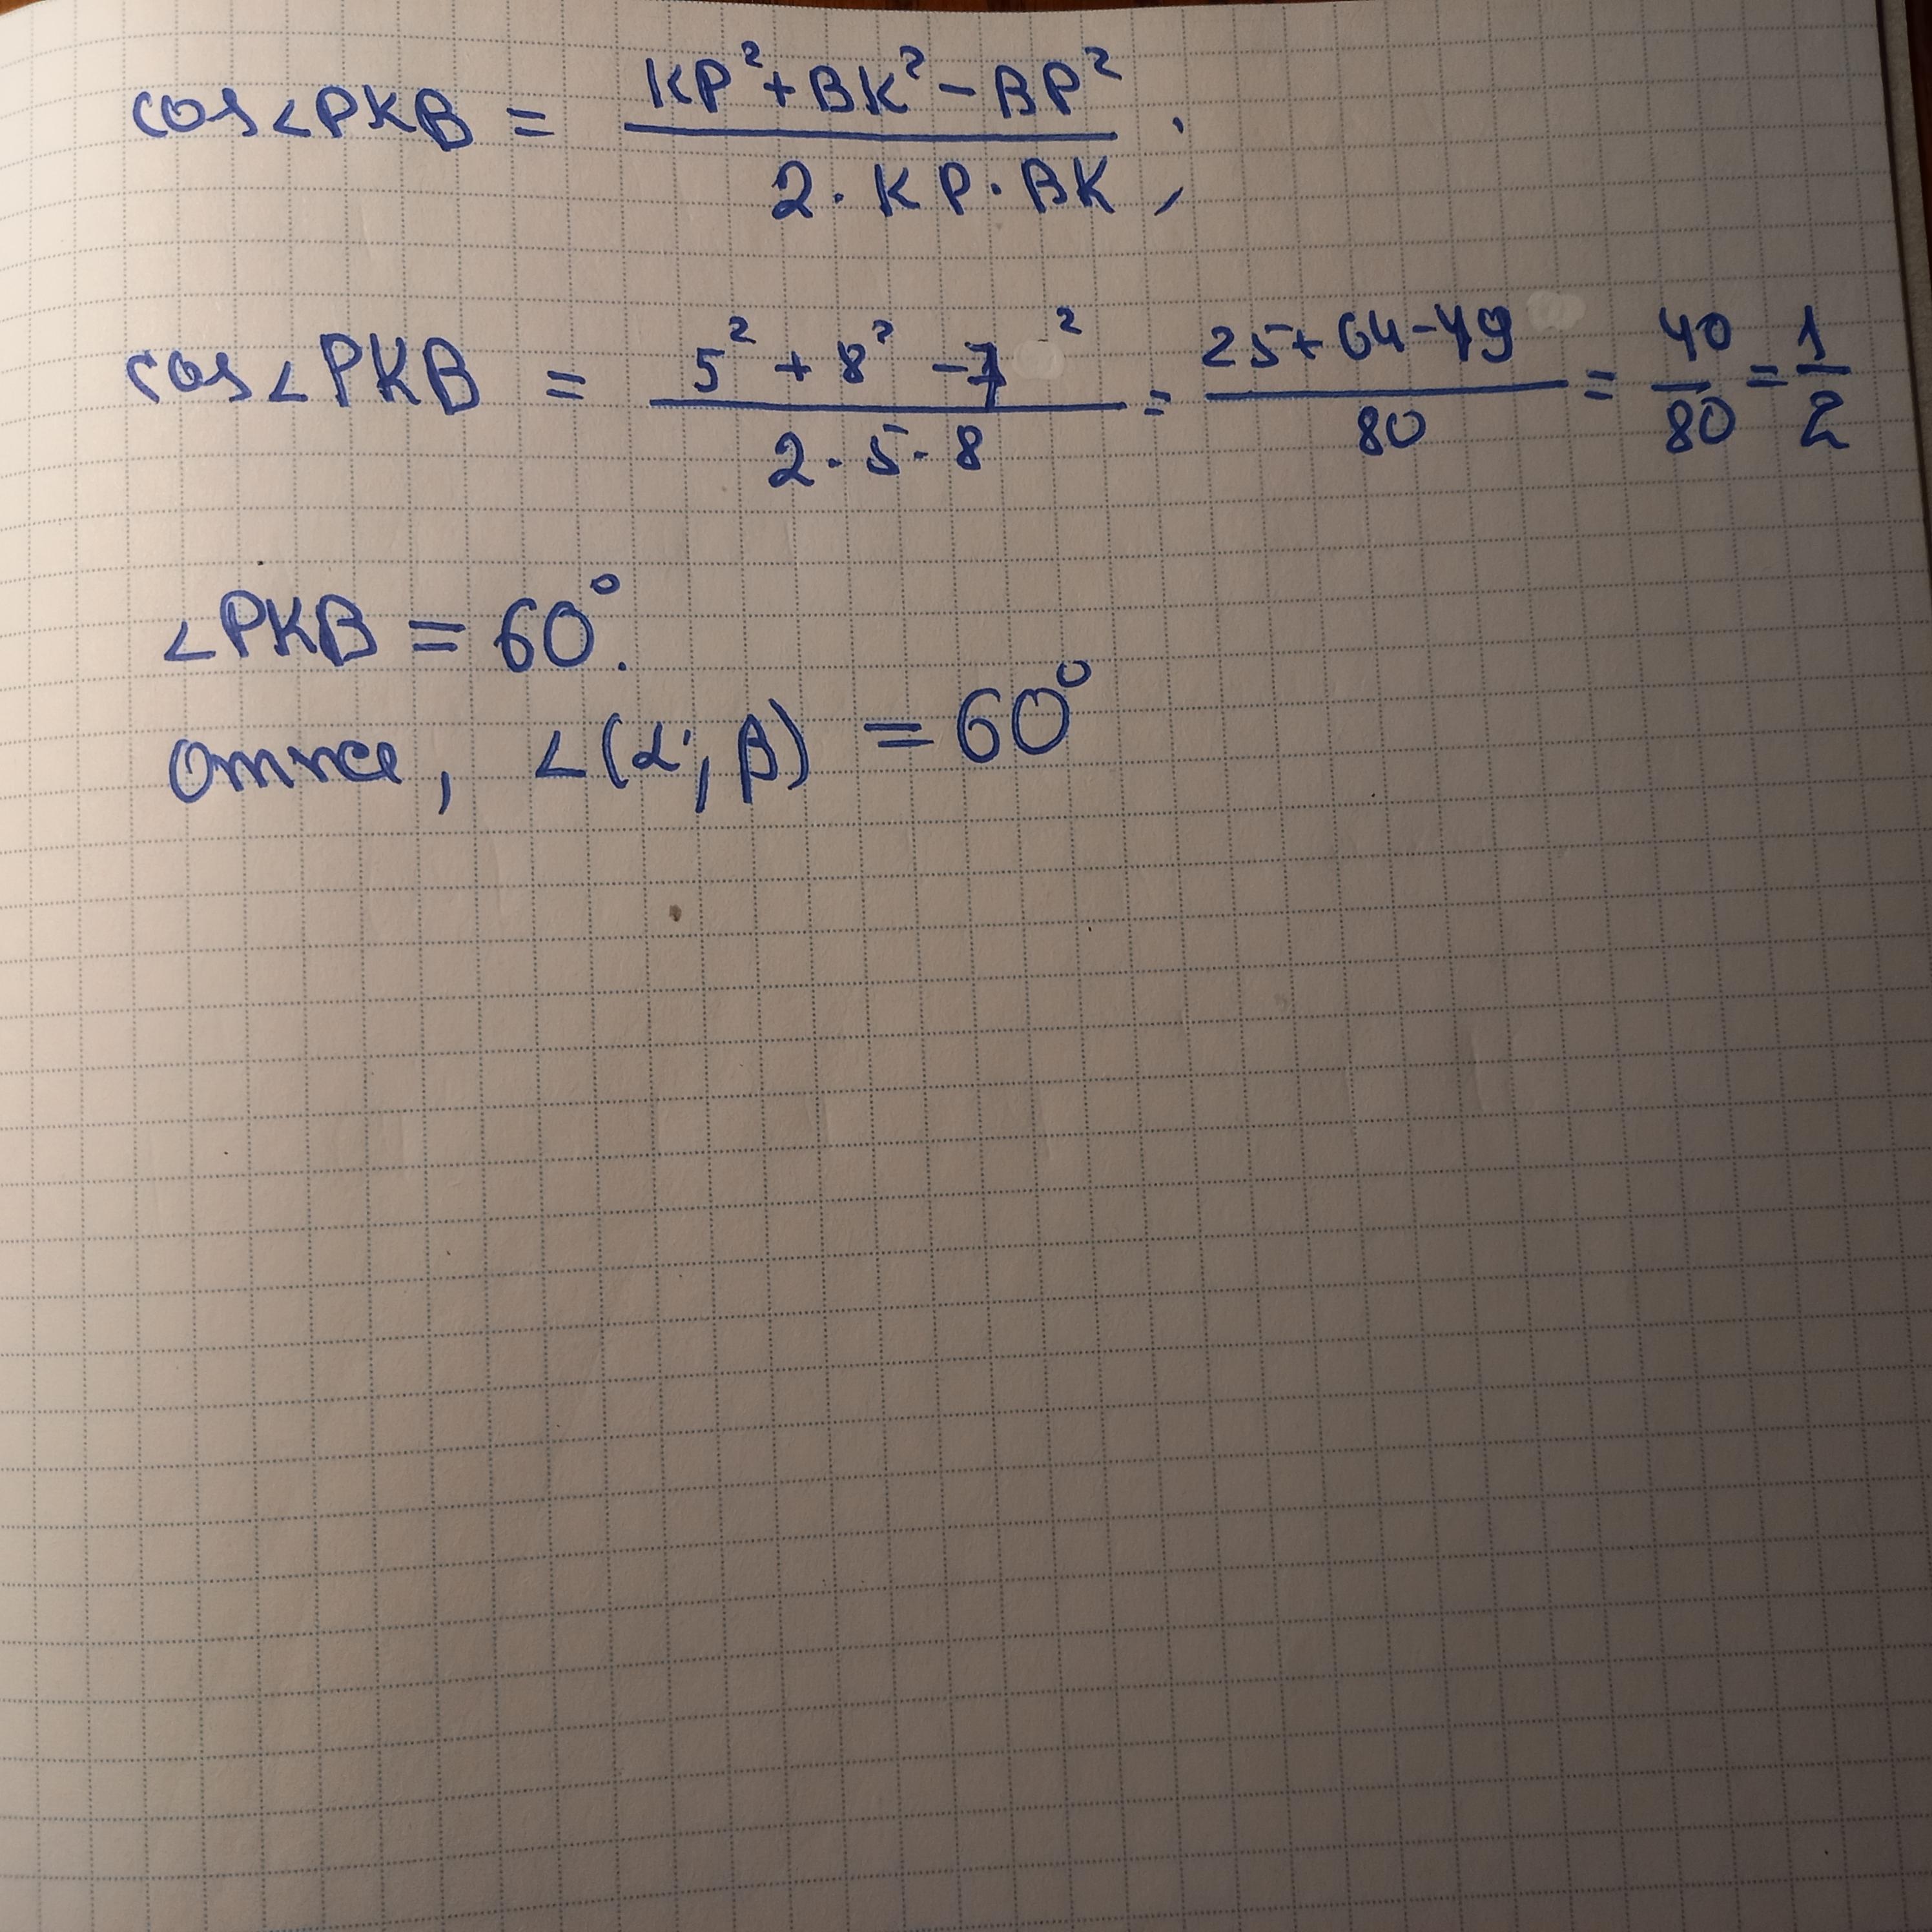 cos∠PKB = (KP² + BK² - BP²) / (2 · KP · BK) ;
cos∠PKB = (5² + 8² - 7²) / (2 · 5 · 8) = (25 + 64 - 49) / 80 = 40/80 = 1/2
∠PKB = 60°.
Отже, ∠(α; β) = 60°